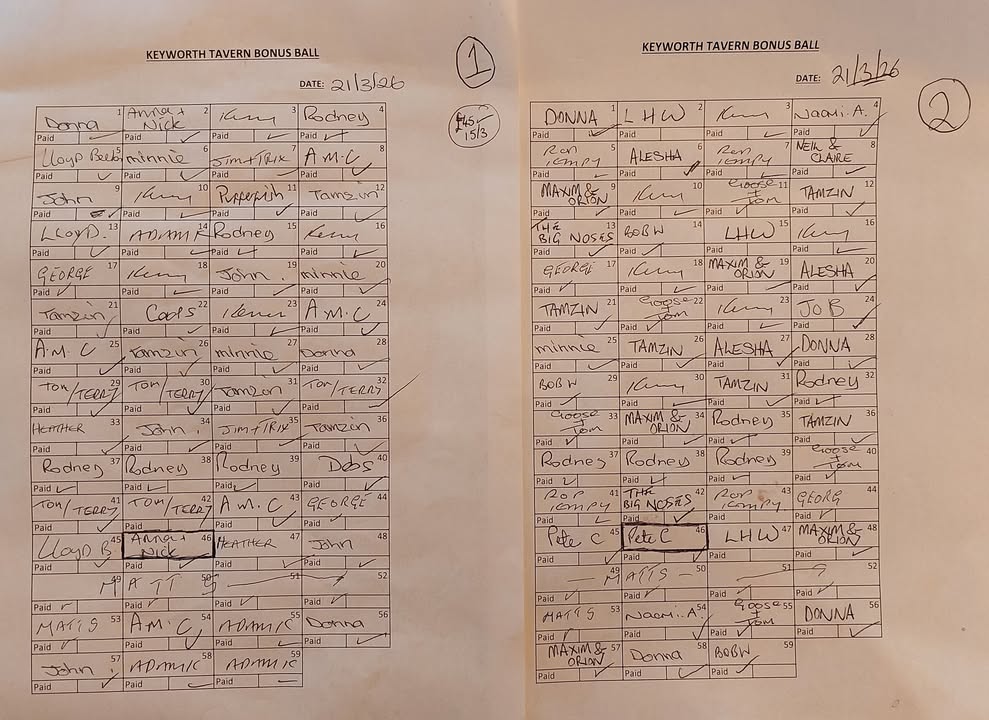 KEYWORTH TAVERN BONUS BALL
DATE: 21/3/26
1
£45
15/3
Donna 1 Anna + Nick 2 3 Rodney 4
Paid Paid Paid Paid
Lloyd 5 minnie 6 Jim+TRIX 7 A.M.C 8
Paid Paid Paid Paid
John 9 10 11 Tamzin 12
Paid Paid Paid Paid
LLOYD. 13 ADAMK 14 Rodney 15 16
Paid Paid Paid Paid
GEORGE 17 18 John. 19 minnie 20
Paid Paid Paid Paid
Tamzin 21 22 23 A.M.C 24
Paid Paid Paid Paid
A.M.C 25 Tamzin 26 minnie 27 Donna 28
Paid Paid Paid Paid
TOM/TERRY 29 TOM/TERRY 30 Tamzin 31 TOM/TERRY 32
Paid Paid Paid Paid
HEATHER 33 John. 34 JIM+TRIX 35 Tamzin 36
Paid Paid Paid Paid
Rodney 37 Rodney 38 Rodney 39 Debs 40
Paid Paid Paid Paid
TOM/TERRY 41 TOM/TERRY 42 A.M.C 43 GEORGE 44
Paid Paid Paid Paid
LLOYD B 45 Anna + Nick 46 HEATHER 47 John 48
Paid Paid Paid Paid
MATT S 49 50 51 52
Paid Paid Paid Paid
MATT S 53 A.M.C, 54 ADAMK 55 Donna 56
Paid Paid Paid Paid
John. 57 ADAMK 58 ADAMK 59
Paid Paid Paid
KEYWORTH TAVERN BONUS BALL
DATE: 21/3/26
2
DONNA 1 LHW 2 3 Naomi.A. 4
Paid Paid Paid Paid
5 ALESHA 6 7 NEIL & CLAIRE 8
Paid Paid Paid Paid
MAXIM & ORION 9 10 Goose + Tom 11 TAMZIN 12
Paid Paid Paid Paid
THE BIG NOSES 13 BOB W 14 LHW 15 16
Paid Paid Paid Paid
GEORGE 17 18 MAXIM & ORION 19 ALESHA 20
Paid Paid Paid Paid
TAMZIN 21 Goose + Tom 22 23 JO B 24
Paid Paid Paid Paid
minnie 25 TAMZIN 26 ALESHA 27 DONNA 28
Paid Paid Paid Paid
BOB W 29 30 TAMZIN 31 Rodney 32
Paid Paid Paid Paid
Goose + Tom 33 MAXIM & ORION 34 Rodney 35 TAMZIN 36
Paid Paid Paid Paid
Rodney 37 Rodney 38 Rodney 39 Goose + Tom 40
Paid Paid Paid Paid
41 THE BIG NOSES 42 43 GEORG 44
Paid Paid Paid Paid
Pete C 45 Pete C 46 LHW 47 MAXIM & ORION 48
Paid Paid Paid Paid
MATT S 49 50 51 52
Paid Paid Paid Paid
MATT S 53 Naomi.A. 54 Goose + Tom 55 DONNA 56
Paid Paid Paid Paid
MAXIM & ORION 57 Donna 58 BOBW 59
Paid Paid Paid